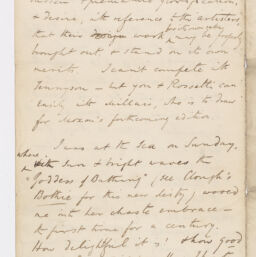 & desire, with reference to the artistes,
that their design work may be properly
brought out & stand on its own
merits. I can't compete with
Tennyson – but you & Rossetti can
with Millais, who is to draw
for Moxon's forthcoming edition.
I was at the Sea on Sunday.
where, in Sun & bright waves the
"Goddess of Bathing" (see Clough's
Bothie for this new deity) wooed
me into her chaste embrace –
the first time for a century.
How delightful it is! & how good